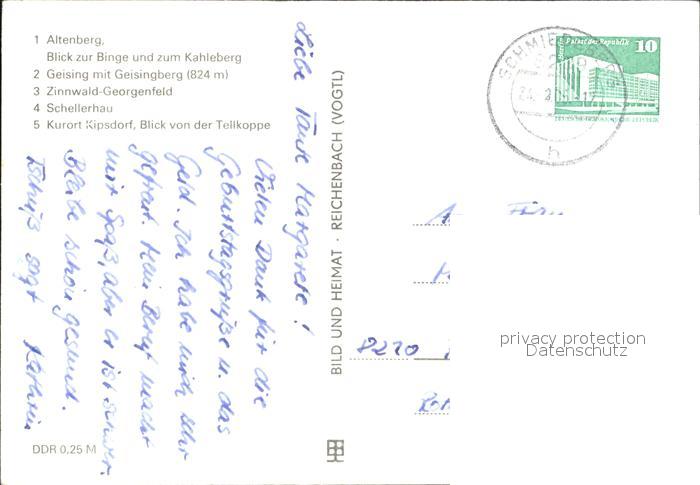 1 Altenberg,
Blick zur Binge und zum Kahleberg
2 Geising mit Geisingberg (824 m)
3 Zinnwald-Georgenfeld
4 Schellerhau
5 Kurort Kipsdorf, Blick von der Tellkoppe
Liebe Tante Margarete!
Vielen Dank für die
Geburtstagsgrüße u. das
Geld. Ich habe mich sehr
gefreut. Mein Beruf macht
mir Spaß, aber er ist schwer.
Bleibe schön gesund.
Tschüß sagt Kathrin
DDR 0,25 M
BILD UND HEIMAT · REICHENBACH (VOGTL)
Palast der Republik
10
DEUTSCHE DEMOKRATISCHE REPUBLIK
b
8210
privacy protection
Datenschutz